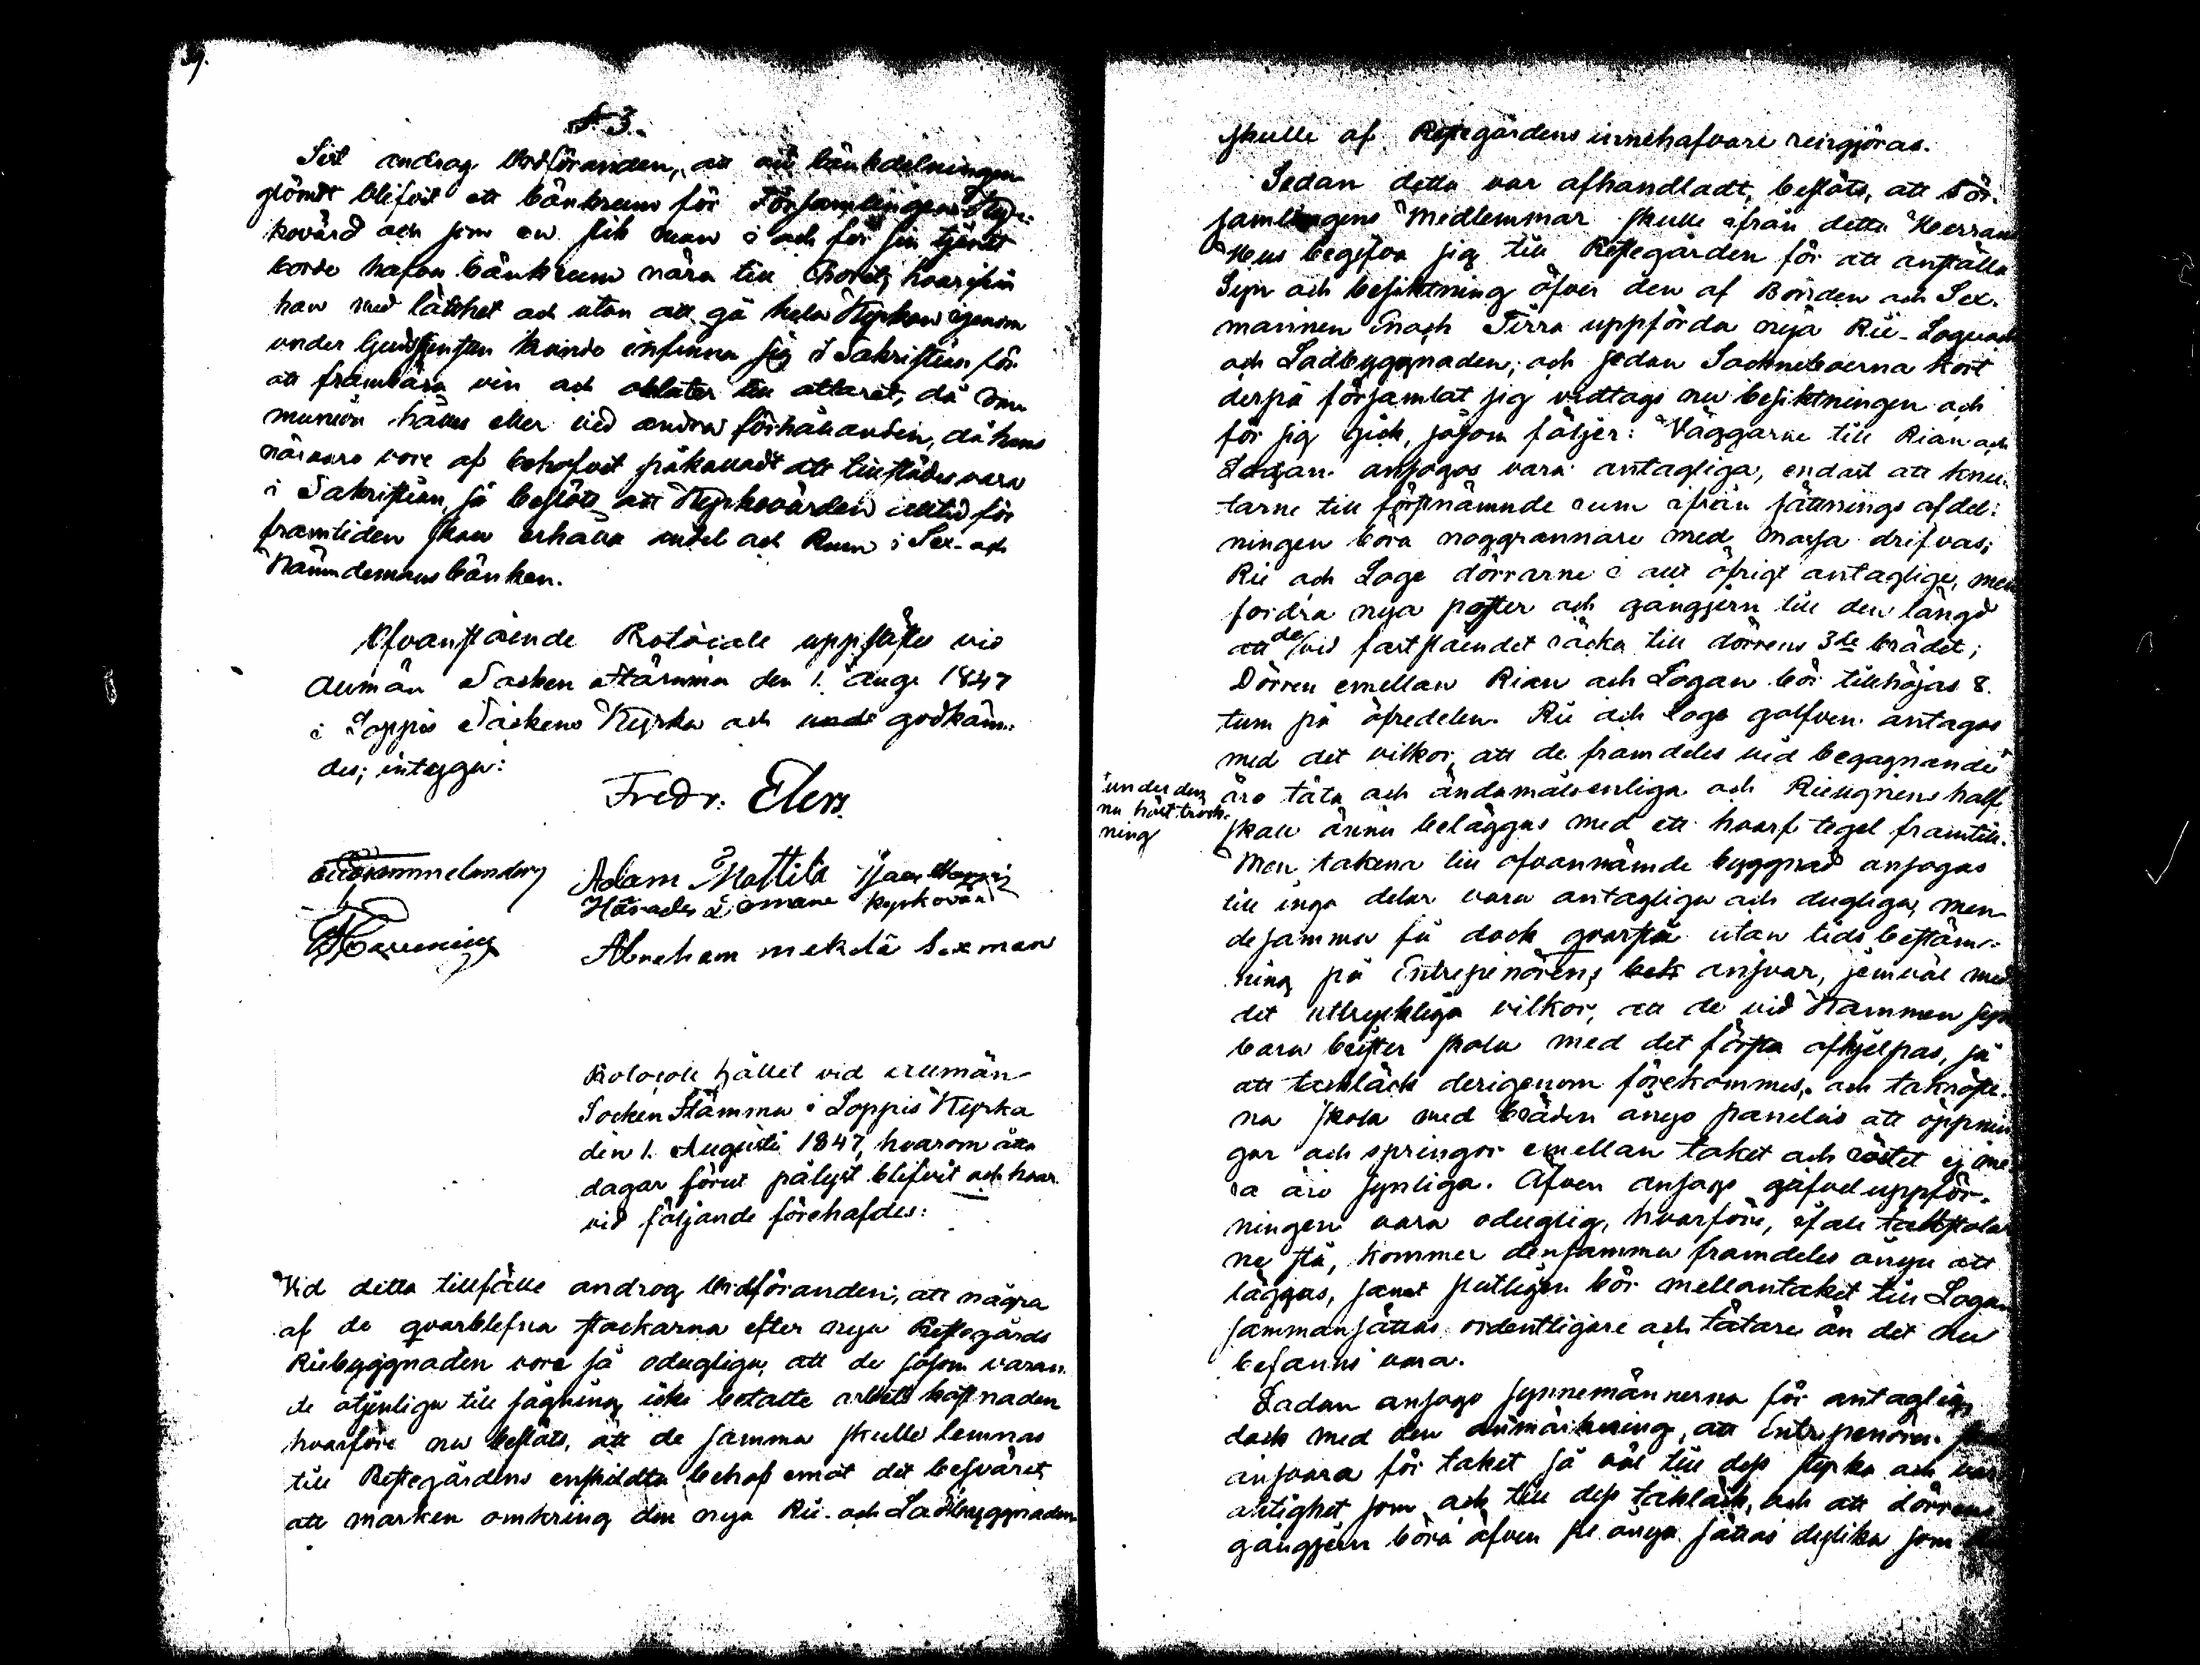 39.
§ 3.
Sist androg Ordföranden, att vid bänkdelningen
glömdt blifvit ett bänkrum för Församlingens Kyr-
kovärd och som en slik man i och för sin tjenst
borde hafva bänkrum nära till Choret, hvarifrån
han med lätthet och utan att gå hela Kyrkan igenom
under Gudstjensten kunde infinna sig i Sakristian för
att frambära vin och oblater till altaret, då Com
munion hålles eller vid andra förhållanden, då hans
närvaro vore af behofvet påkalladt att tillstädes vara
i Sakristian, så beslöts att Kyrkovärden alltid för
framtiden skall erhålla andel och Rum i Sex- och
Nämndemansbänken.
Ofvanstående Protocoll upplästes vid
allmän Socken Stämma den 1. Aug. 1847
i Loppis Sockens Kyrka och godkän-
des; intyga:
Fredr. Elers.
Adam Mattila
Härads Kyrkovärd
Abraham mekelä Sexman
Protocoll hållet vid allmän
Socken Stämma i Loppis Kyrka
den 1. Augusti 1847, hvarom åtta
dagar förut pålyst blifvit och hvar
vid följande förehafdes:
Vid detta tillfälle androg Ordföranden, att några
af de qvarblefna stockarna efter nya Prestegårds
Riebyggnaden vore så odugliga, att de såsom varan-
de otjenliga till sågning icke betalte arbetskostnaden
hvarföre nu beslöts, att de samma skulle lemnas
till Prestegårdens enskildta behof emot det besväret,
att marken omkring den nya Rie- och Ladbyggnaden
skulle af Prestegårdens innehafvare rengjöras.
Sedan detta var afhandladt, beslöts, att För-
samlingens Medlemmar skulle ifrån detta Herrans
Hus begifva sig till Prestegården för att anställa
Syn och besiktning öfver den af Bonden och Sex-
mannen Enoch Sirra uppförda nya Rie- Loge och
och Ladbyggnaden; och sedan Sockneboerna kort
derpå församlat sig vidtogs nu besiktningen och
för sig gick, såsom följer: Väggarne till Rian och
Logan ansågos vara antagliga, endast att knu-
tarne till förstnämnde rum ifrån sättnings afdel-
ningen böra noggrannare med mossa drifvas;
Rie och Loge dörrarne i allt öfrigt antaglige, men
fordra nya poster och gångjern till den längd
att de vid fastslåendet räcka till dörrens 3de brädet;
Dörren emellan Rian och Logan bör tillhöjas 8.
tum på öfredelen. Rie och Loge golfven antagas
med det vilkor, att de framdeles vid begagnande
under den
nu
ning
äro täta och ändamålsenliga och Rieugnens half
skall ännu beläggas med ett hvarf tegel framtill.
Men taken till ofvannämnde byggnad ansågos
till inga delar vara antagliga och dugliga, men
desamma få dock qvarstå utan tids bestäm-
ning på Entreprenörens ansvar, jemväl med
det uttryckliga vilkor, att de vid Hammen syn
bara brister skola med det första afhjelpas, så
att takläck derigenom förekommes, och takröste-
na skola med bräden ånyo panelas att öppnin
gar och springor emellan taket och röstet ej me-
ra äro synliga. Äfven ansågs gafveluppför-
ningen vara oduglig, hvarföre, ifall takstolar
ne stå, kommer densamma framdeles ånyo att
läggas, samt slutligen bör mellantaket till Logan
sammansättas ordentligare och tätare än det nu
befanns vara.
Ladan ansågo synnemännerna för antaglig,
dock med den anmärkning, att Entreprenören
ansvara för taket så väl till dess styrka och var
aktighet som och till dess takläck, och att dörrens
gångjern böra äfven ånyo sättas deslika som